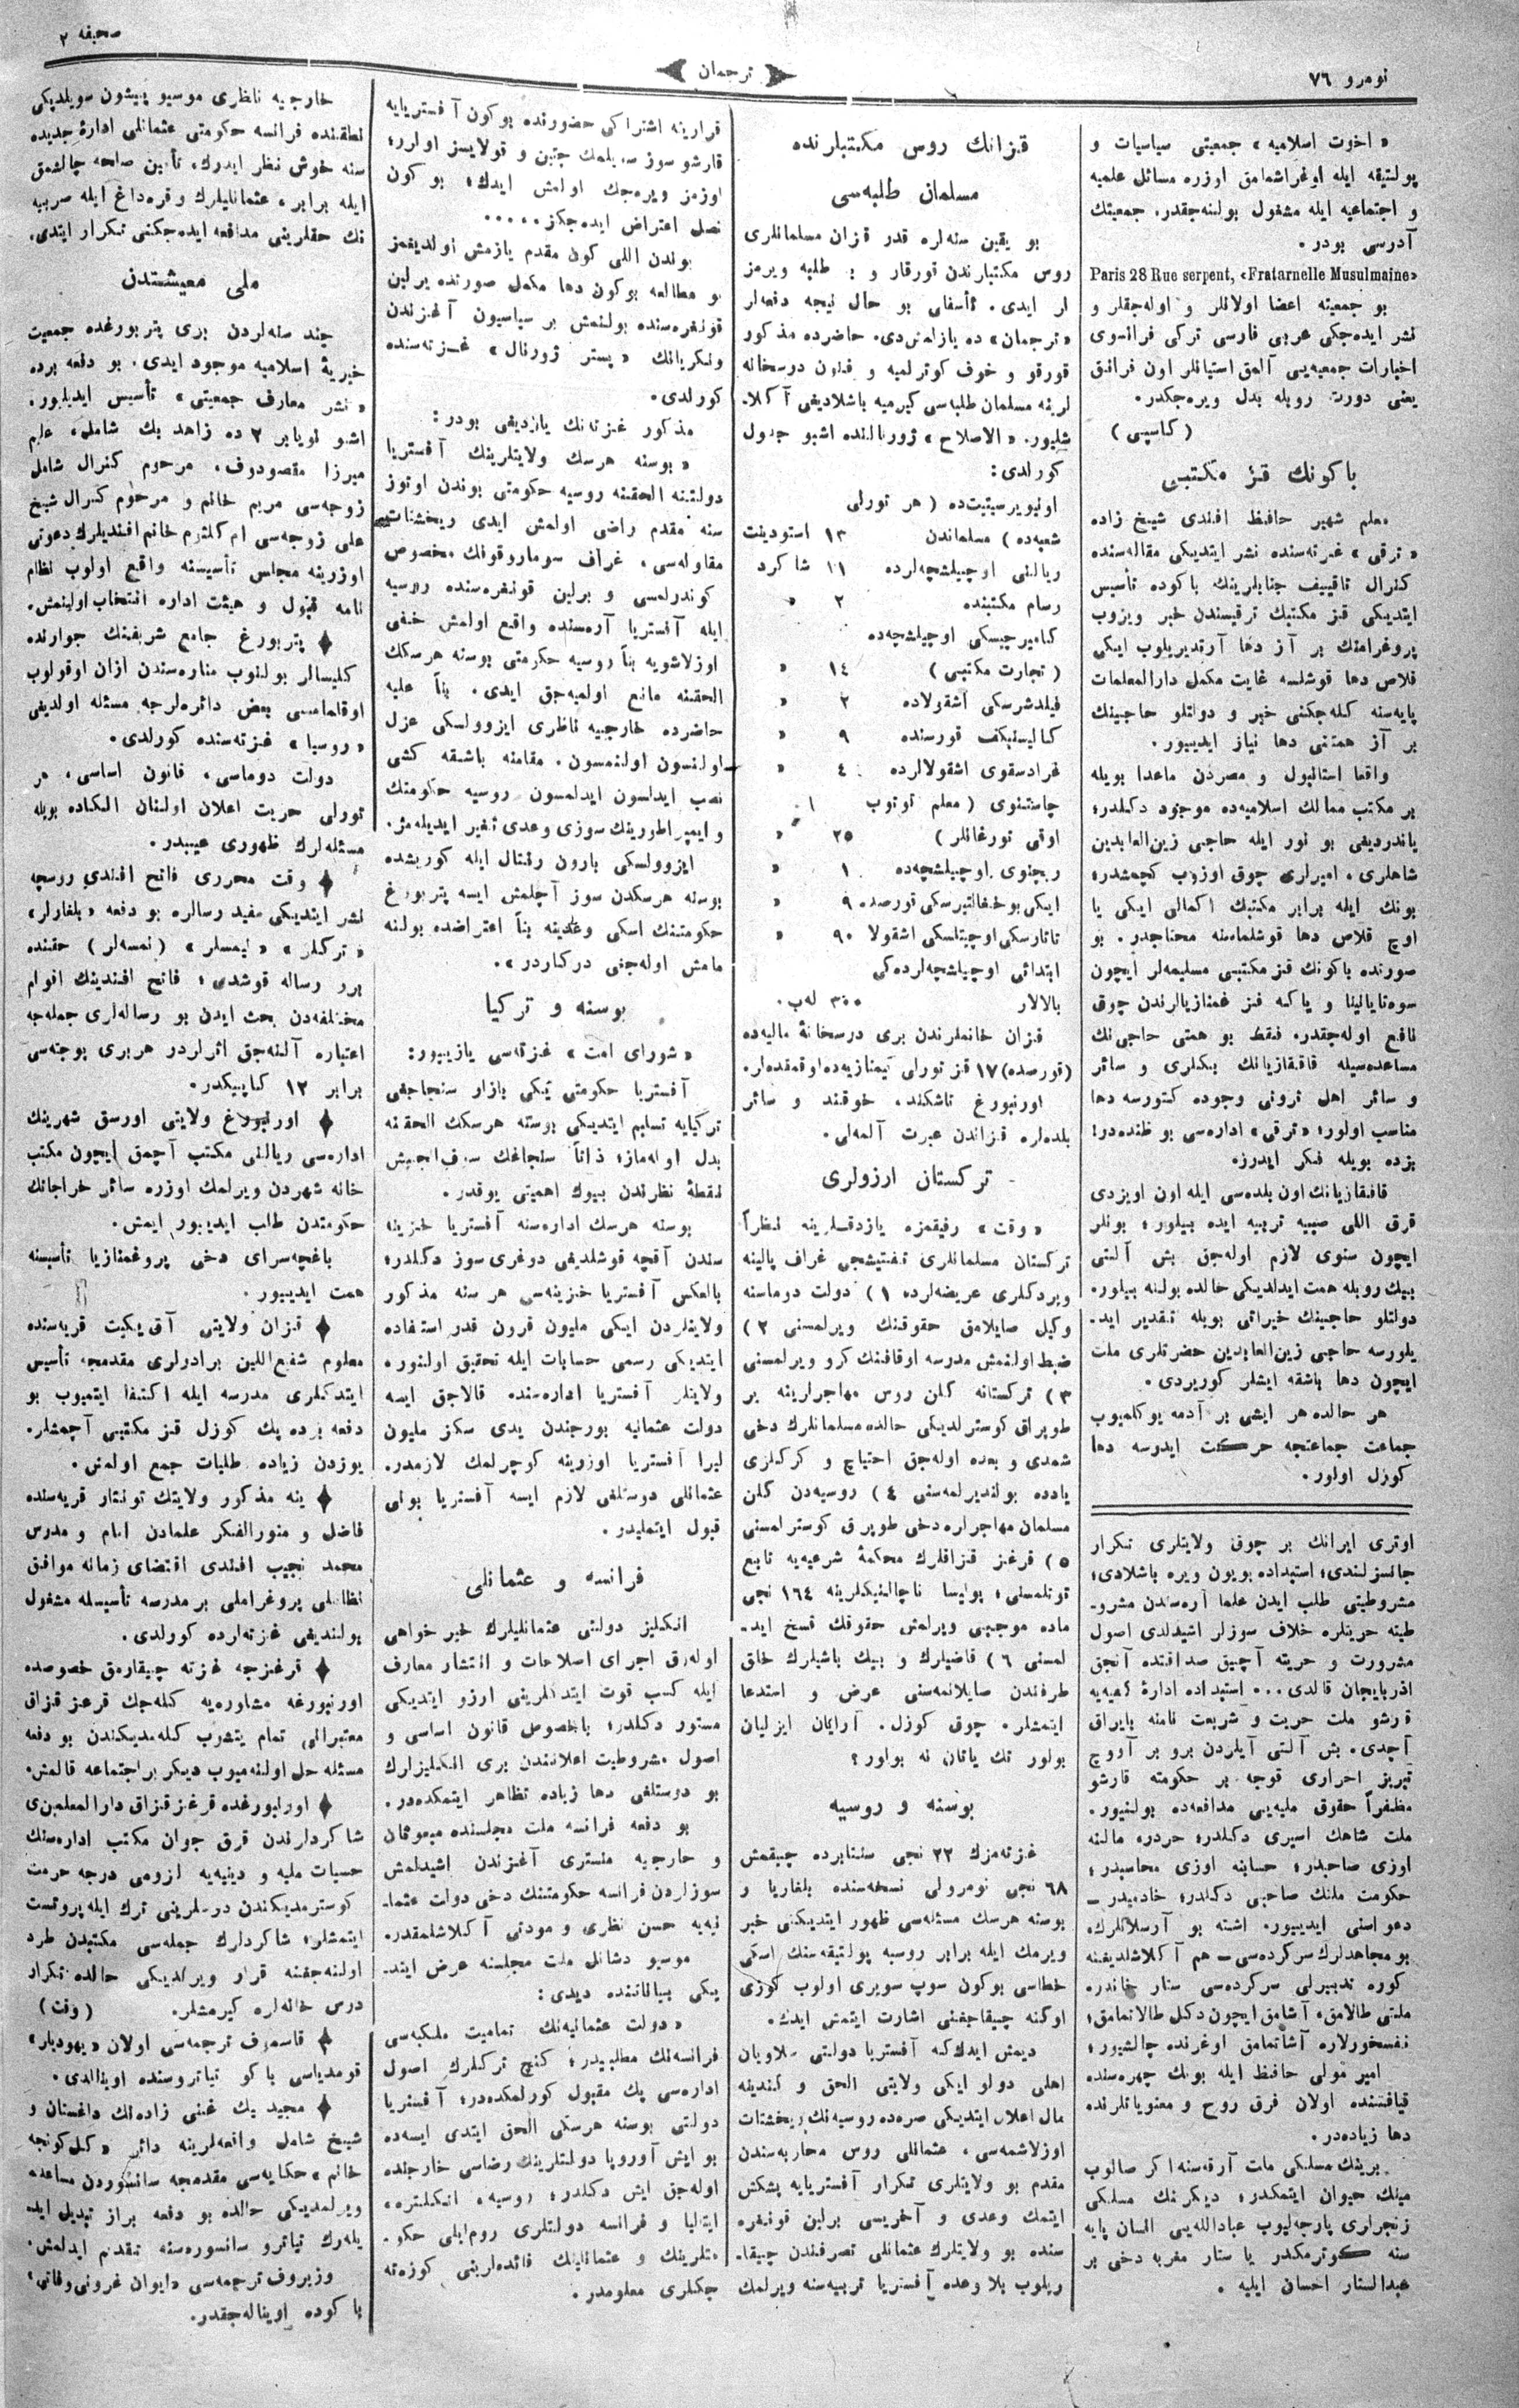 نومرو ٧٦
ترجمان
صحیفه ٢
« اخوت اسلامیه » جمعیتی سیاسیات و
پولتیقه ایله اوغراشمامق اوزره مسائل علمیه
و اجتماعیه ایله مشغول بولنه‌جقدر. جمعیتك
آدرسی بودر.
Paris 28 Rue serpent, «Fratarnelle Musulmaine»
بو جمعیته اعضا اولانلر و اوله‌جقلر و
نشر ایده‌جکی عربی فارسی ترکی فرانسوی
اخبارات جمعیه‌یی آلمق استیانلر اون فرانق
یعنی دورت روبله بدل ویره‌جکدر.
( کاسپی )
باکونك قز مکتبی
معلم شهیر حافظ افندی شیخ زاده
« ترقی » غزته‌سنده نشر ایتدیکی مقاله‌سنده
کنرال تاقییف جنابلرینك باکوده تأسیس
ایتدیکی قز مکتبك ترقیسندن خبر ویروب
پروغرامنك بر آز دها آرتدیریلوب ایکی
قلاص دها قوشلسه غایت مکمل دارالمعلمات
پایه‌سنه کله‌جکنی خبر و دولتلو حاجینك
بر آز همتنی دها نیاز ایدییور.
واقعا استانبول و مصردن ماعدا بویله
بر مکتب ممالك اسلامیه‌ده موجود دکلدر؛
یاندردیغی بو نور ایله حاجی زین‌العابدین
شاهلری، امیرلری چوق اوزوب کچمشدر؛
بونك ایله برابر مکتبك اکمالی ایکی یا
اوچ قلاص دها قوشلماسنه محتاجدر. بو
صورنده باکونك قز مکتبی مسلیمه‌لر ایچون
سوه‌تایالینا و یاکه قز غمنازیالرندن چوق
نافع اوله‌جقدر. فقط بو همتی حاجی‌نك
مساعده‌سیله قافقازیانك بیکلری و سائر
و سائر اهل ثروتی وجوده کتورسه دها
مناسب اولور؛ « ترقی » اداره‌سی بو ظنده‌در؛
بزده بویله فکر ایدرز.
قافقازیانك اون بلده‌سی ایله اون اویزدی
قرق اللی صبیه تربیه ایده بیلور؛ بونلر
ایچون سنوی لازم اوله‌جق بش آلتی
بیك روبله همت ایدلدیکی حالده بولنه بیلور.
دولتلو حاجینك خیراتی بویله تقدیر اید-
یلورسه حاجی زین‌العابدین حضرتلری ملت
ایچون دها باشقه ایشلر کوریردی.
هر حالده هر ایشی بر آدمه یوکلمیوب
جماعت جماعتجه حرکت ایدوسه دها
کوزل اولور.
اوتری ایرانك بر چوق ولایتلری تکرار
جانسزلندی؛ استبداده بویون ویره باشلادی؛
مشروطیتی طلب ایدن علما آره‌سندن مشرو-
طیته حریتلره خلاف سوزلر اشیدلدی اصول
مشرورت و حریته آچیق صداقتده آنجق
اذربایجان قالدی... استبداده ادارهٔ کیفیه‌یه
قرشو ملت حریت و شریعت نامنه بایراق
آچدی. بش آلتی آیلردن برو بر آووچ
تبریز احراری قوجه بر حکومته قارشو
مظفراً حقوق ملیه‌یی مدافعه‌ده بولنیور.
ملت شاهك اسیری دکلدر؛ حردر، مالنه
اوزی صاحبدر؛ حسابنه اوزی محاسبدر؛
حکومت ملتك صاحبی دکلدر؛ خادمیدر –
دعواسنی ایدییور. اشته بو آرسلانلرك،
بو مجاهدلرك سرکرده‌سی – هم آکلاشلدیغنه
کوره تدبیرلی سرکرده‌سی ستار خاندر.
ملتی طالامق، آشامق ایچون دکل طالاتمامق؛
نفسخورلاره آشاتمامق اوغرنده چالشیور؛
امیر مولی حافظ ایله بونك چهره‌سنده
قیافتنده اولان فرق روح و معنویاتلرنده
دها زیاده‌در.
برینك مسلکی ملت آرقه‌سنه اکر صالوب
مینك حیوان ایتمکدر؛ دیکرنك مسلکی
زنجرلری پارچه‌لیوب عبادالله‌یی انسان پایه
سنه کوترمکدر یا ستار مغربه دخی بر
عبدالستار احسان ایلیه.
قزانك روس مکتبلرنده
مسلمان طلبه‌سی
بو یقین سنه‌لره قدر قزان مسلمانلری
روس مکتبلرندن قورقار و طلبه ویرمز
لر ایدی. تأسفلی بو حال نیجه دفعه‌لر
« ترجمان » ده یازلمش‌دی. حاضرده مذکور
قورقو و خوف کوترلمیه و فنون درسخانه
لرینه مسلمان طلبه‌سی کیرمیه باشلادیغی آکلا-
شلیور. « الاصلاح » ژورنالنده اشبو جدول
کورلدی:
اونیویرسیتیت‌ده ( هر تورلی
شعبه‌ده ) مسلماندن ١٣ استودینت
ریالنی اوچیلشچه‌لرده ١١ شاکرد
رسام مکتبنده ٢ «
کامیرچیسکی اوچیلشچه‌ده
( تجارت مکتبی ) ١٤ «
فیلدشرسکی اشقولاده ٢ «
کالیستیکف قورسنده ٩ «
غرادسقوی اشقولالرده ٤ «
چاستنوی ( معلم توتوب
اوقی تورغانلر ) ٢٥ «
ریچنوی اوچیلشچه‌ده ١ «
ایکی بوخغالتیرسکی قورصده ٩ «
تاتارسکی اوچیتلسکی اشقولا ٩٠ «
ابتدائی اوچیلشچه‌لرده‌کی
بالالار ٣٠٠ له‌پ.
قزان خانملرندن بری درسخانهٔ عالیه‌ده
(قورصده) ١٧ قز تورلی گیمنازیه‌ده اوقمقده‌لر.
اورنبورغ تاشکند، خوقند و سائر
بلده‌لره قزاندن عبرت آلمه‌لی.
ترکستان ارزولری
« وقت » رفیقمزه یازدقلرینه نظراً
ترکستان مسلمانلری تفتیشجی غراف پالینه
ویردکلری عریضه‌لرده ١ ) دولت دوماسنه
وکیل صایلامق حقوقنك ویرلمسنی ٢ )
ضبط اولنمش مدرسه اوقافنك کرو ویرلمسنی
٣ ) ترکستانه کلن روس مهاجرلرینه یر
طوپراق کوسترلدیکی حالده مسلمانلرك دخی
شمدی و بعده اوله‌جق احتیاج و کرکلری
یادده بولندیرلمه‌سنی ٤ ) روسیه‌دن کلن
مسلمان مهاجرلره دخی طوپرق کوسترلمسنی
٥ ) قرغز قزاقلرك محکمهٔ شرعیه‌یه تابع
توتلمسنی؛ بولیسا ناچالنیکلرینه ١٦٤ نجی
ماده موجبی ویرلمش حقوقك فسخ اید-
لمسنی ٦ ) قاضیلرك و بیك باشیلرك خلق
طرفندن صایلانمه‌سنی عرض و استدعا
ایتمشلر. چوق کوزل. آرایان ایزلیان
بولور تك یاتان نه بولور؟
بوسنه و روسیه
غزته‌مزك ٢٢ نجی سنتابرده چیقمش
٦٨ نجی نومرولی نسخه‌سنده بلغاریا و
بوسنه هرسك مسئله‌سی ظهور ایتدیکنی خبر
ویرمك ایله برابر روسیه پولتیقه‌سنك اسکی
خطاسی بوکون سوپ سویری اولوب کوزی
اوکنه چیقاجغنی اشارت ایتمش ایدك.
دیمش ایدك که آفستریا دولتی سلاویان
اهلی دولو ایکی ولایتی الحق و کندینه
مال اعلان ایتدیکی صره‌ده روسیه‌نك ریخشتات
اوزلاشمه‌سی، عثمانلی روس محاربه‌سندن
مقدم بو ولایتلری تکرار آفستریایه پشکش
ایتمك وعدی و آخریسی برلین قونغره
سنده بو ولایتلرك عثمانلی تصرفندن چیقا-
ریلوب بلا وعده آفستریا تربیه‌سنه ویرلمك
قرارینه اشتراکی حضورنده بوکون آفستریایه
قارشو سوز سویلمك چتین و قولایسز اولرر؛
اوزمز ویره‌جك اولمش ایدك؛ بوکون
نصل اعتراض ایده‌جکز.....
بوندن اللی کون مقدم یازمش اولدیغمز
بو مطالعه بوکون دها مکمل صورنده برلین
قونغره‌سنده بولنمش بر سیاسیون آغزندن
ونکریانك « پستر ژورنال » غزته‌سنده
کورلدی.
مذکور غزته‌نك یازدیغی بودر:
« بوسنه هرسك ولایتلرینك آفستریا
دولتینه الحقنه روسیه حکومتی بوندن اوتوز
سنه مقدم راضی اولمش ایدی ریخشتات
مقاوله‌سی، غراف سوماروقوفك مخصوص
کوندرلمسی و برلین قونغره‌سنده روسیه
ایله آفستریا آره‌سنده واقع اولمش خفی
اوزلاشویه بناً روسیه حکومتی بوسنه هرسکك
الحقنه مانع اولمیه‌جق ایدی. بناً علیه
حاضرده خارجیه ناظری ایزوولسکی عزل
اولنسون اولنمسون، مقامنه باشقه کشی
نصب ایدلسون ایدلمسون روسیه حکومتك
و ایمپراطورینك سوزی وعدی تغیر ایدیله‌مز.
ایزوولسکی بارون رئنتال ایله کوریشده
بوسنه هرسکدن سوز آچلمش ایسه پتربورغ
حکومتنك اسکی وعدینه بناً اعتراضده بولنه
مامش اوله‌جنی درکاردر ».
بوسنه و ترکیا
« شورای امت » غزته‌سی یازییور:
آفستریا حکومتی یکی بازار سنجاغی
ترکیایه تسلیم ایتدیکی بوسنه هرسکك الحقنه
بدل اوله‌ماز؛ ذاتاً سنجاغك سوق‌الجیش
نقطهٔ نظرندن بیوك اهمیتی یوقدر.
بوسنه هرسك اداره‌سنه آفستریا خزینه
سندن آقچه قوشلدیغی دوغری سوز دکلدر؛
بالعکس آفستریا خزینه‌سی هر سنه مذکور
ولایتلردن ایکی ملیون قرون قدر استفاده
ایتدیکی رسمی حسابات ایله تحقیق اولنور.
ولایتلر آفستریا اداره‌سنده قالاجق ایسه
دولت عثمانیه بورجندن یدی سکز ملیون
لیرا آفستریا اوزرینه کوچرلمك لازمدر.
عثمانلی دوستلغی لازم ایسه آفستریا بونی
قبول ایتملیدر.
فرانسه و عثمانلی
انکلیز دولتی عثمانلیلرك خیر خواهی
اوله‌رق اجرای اصلاحات و انتشار معارف
ایله کسب قوت ایتدلمرینی ارزو ایتدیکی
مستور دکلدر؛ باخصوص قانون اساسی و
اصول مشروطیت اعلانندن بری انکلیزلرك
بو دوستلغی دها زیاده تظاهر ایتمکده‌در.
بو دفعه فرانسه ملت مجلسنده مبعوثان
و خارجیه منستری آغزندن اشیدلمش
سوزلردن فرانسه حکومتنك دخی دولت عثما-
نیه‌یه حسن نظری و مودتی آکلاشلمقدر.
موسیو دشانل ملت مجلسنه عرض ایتد-
یکی بیاناتنده دیدی:
« دولت عثمانیه‌نك تمامیت ملکیه‌سی
فرانسه‌نك مطلبیدر؛ کنج ترکلرك اصول
اداره‌سی پك مقبول کورلمکده‌در؛ آفستریا
دولتی بوسنه هرسکی الحق ایتدی ایسه‌ده
بو ایش آوروپا دولتلرینك رضاسی خارجنده
اوله‌جق ایش دکلدر؛ روسیه، انکلتره،
ایتالیا و فرانسه دولتلری روم‌ایلی حکو-
متلرینك و عثمانلینك فائده‌لرینی کوزه‌ته
جکلری معلومدر.
خارجیه ناظری موسیو پیشون سویلدیکی
نطقنده فرانسه حکومتی عثمانلی ادارهٔ جدیده
سنه خوش نظر ایدرك، تأمین صلحه چالشمق
ایله برابر، عثمانلیلرك وقره‌داغ ایله صربیه
نك حقلرینی مدافعه ایده‌جکنی تکرار ایتدی.
ملی معیشتدن
چند سنه‌لردن بری پتربورغده جمعیت
خیریهٔ اسلامیه موجود ایدی. بو دفعه برده
« نشر معارف جمعیتی » تأسیس ایدیلیور.
اشبو نویابر ٢ ده زاهد بك شامل، علم
میرزا مقصودوف، مرحوم کنرال شامل
زوجه‌سی مریم خانم و مرحوم کنرال شیخ
علی زوجه‌سی ام کلثوم خانم افندیلرك دعوتی
اوزرینه مجلس تأسیسنه واقع اولوب نظام
نامه قبول و هیئت اداره انتخاب اولنمش.
♦ پتربورغ جامع شریفنك جوارنده
کلیسالر بولنوب مناره‌سندن اذان اوقولوب
اوقلمامسی بعض دائره‌لرجه مسئله اولدیغی
« روسیا » غزته‌سنده کورلدی.
دولت دوماسی، قانون اساسی، هر
تورلی حریت اعلان اولنان الکاده بویله
مسئله‌لرك ظهوری عیبدر.
♦ وقت محرری فاتح افندی روسچه
نشر ایتدیکی مفید رسالره بو دفعه « بلغارلر »
« ترکلر » « نیمسلر » ( نمسه‌لر ) حقنده
برر رساله قوشدی؛ فاتح افندینك اقوام
مختلفه‌دن بحث ایدن بو رساله‌لری جمله‌جه
اعتباره آلنه‌جق اثرلردر هربری بوجته‌سی
برابر ١٢ کاپیکدر.
♦ اورنبورغ ولایتی اورسق شهرینك
اداره‌سی ریالنی مکتب آچمق ایچون مکتب
خانه شهردن ویرلمك اوزره سائر خراجاتك
حکومتدن طلب ایدییور ایمش.
باغچه‌سرای دخی پروغمنازیا تأسیسنه
همت ایدییور.
♦ قزان ولایتی آق یکیت قریه‌سنده
معلوم شفیع‌اللین برادرلری مقدمجه تأسیس
ایتدکلری مدرسه ایله اکتفا ایتمیوب بو
دفعه برده پك کوزل قز مکتبی آچمشلر.
یوزدن زیاده طلبات جمع اولمش.
♦ ینه مذکور ولایتك تونتار قریه‌سنده
فاضل و منورالفکر علمادن امام و مدرس
محمد نجیب افندی اقتضای زمانه موافق
نظاملی پروغراملی بر مدرسه تأسیسله مشغول
بولندیغی غزته‌لرده کورلدی.
♦ قرغزجه غزته چیقارمق خصوصده
اورنبورغه مشاوره‌یه کله‌جك قرغز قزاق
معتبرانی تمام یتشوب کله‌مدیکندن بو دفعه
مسئله حل اولنه‌میوب دیکر بر اجتماعه قالمش.
♦ اورنبورغده قرغز قزاق دارالمعلمینی
شاکردارندن قرق جوان مکتب اداره‌سنك
حسیات ملیه و دینیه‌یه لزومی درجه حرمت
کوسترمدیکندن درسلرینی ترك ایله پروتست
ایتمشلر؛ شاکردلرك جمله‌سی مکتبدن طرد
اولنه‌جغنه قرار ویرلدیکی حالده تکرار
درس خانه‌لره کیرمشلر. ( وقت )
♦ قاسموف ترجمه‌سی اولان « یهودیلر »
قومدیاسی باکو تیاتروسنده اوینالدی.
♦ مجید بك غنی زاده‌نك داغستان و
شیخ شامل واقعه‌لرینه دائر « کل‌کونجه
خانم » حکایه‌سی مقدمجه سانسوردن مساعده
ویرلمدیکی حالده بو دفعه براز تبدیل ایده
یله‌رك تیاترو سانسوره‌سنه تقدیم ایدلمش.
وزیروف ترجمه‌سی « ایوان غروزنی وفاتی »
باکوده اوینالەجقدر.